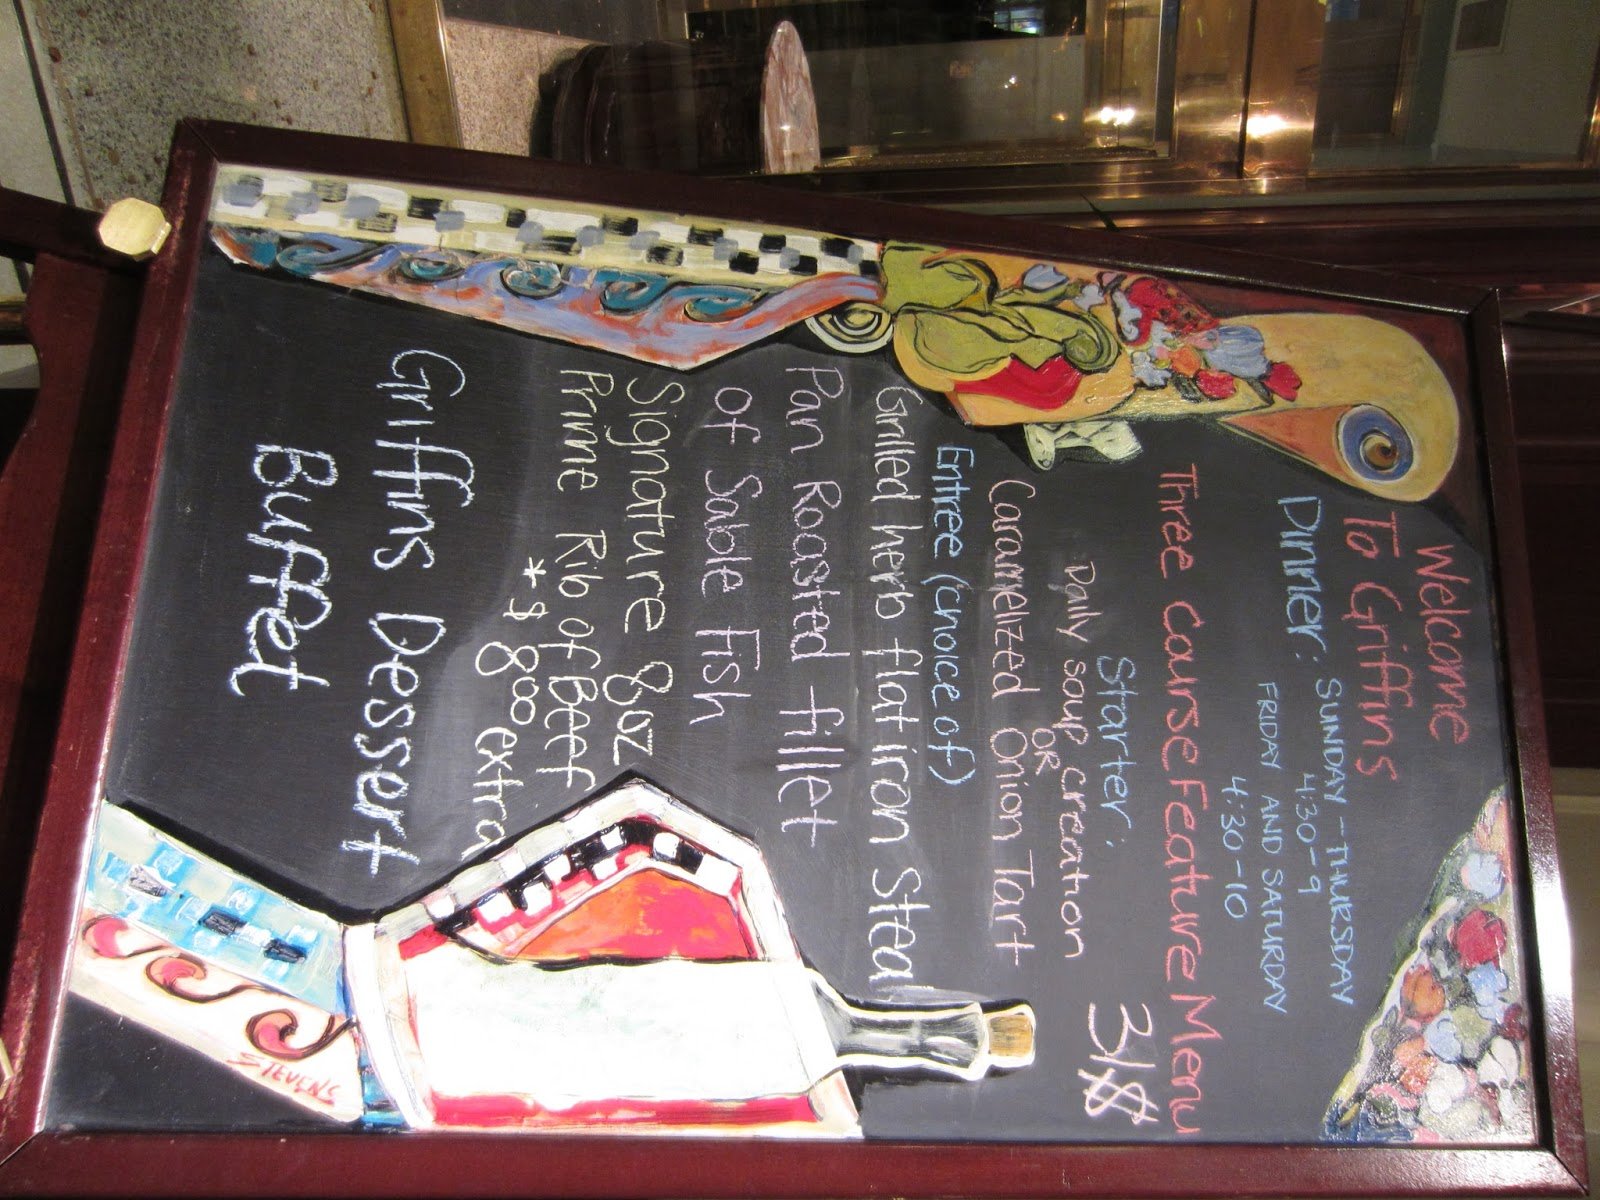 Welcome
To Griffins
Dinner: SUNDAY - THURSDAY
4:30-9
FRIDAY AND SATURDAY
4:30-10
Three Course Feature Menu
Starter: 31$
Daily soup creation
OR
Caramelized Onion Tart
Entree (choice of)
Grilled herb flat iron Steak
Pan Roasted fillet
of Sable Fish
Signature 8oz
Prime Rib of Beef
* $ 8.00 extra
Griffins Dessert
Buffet
STEVENS